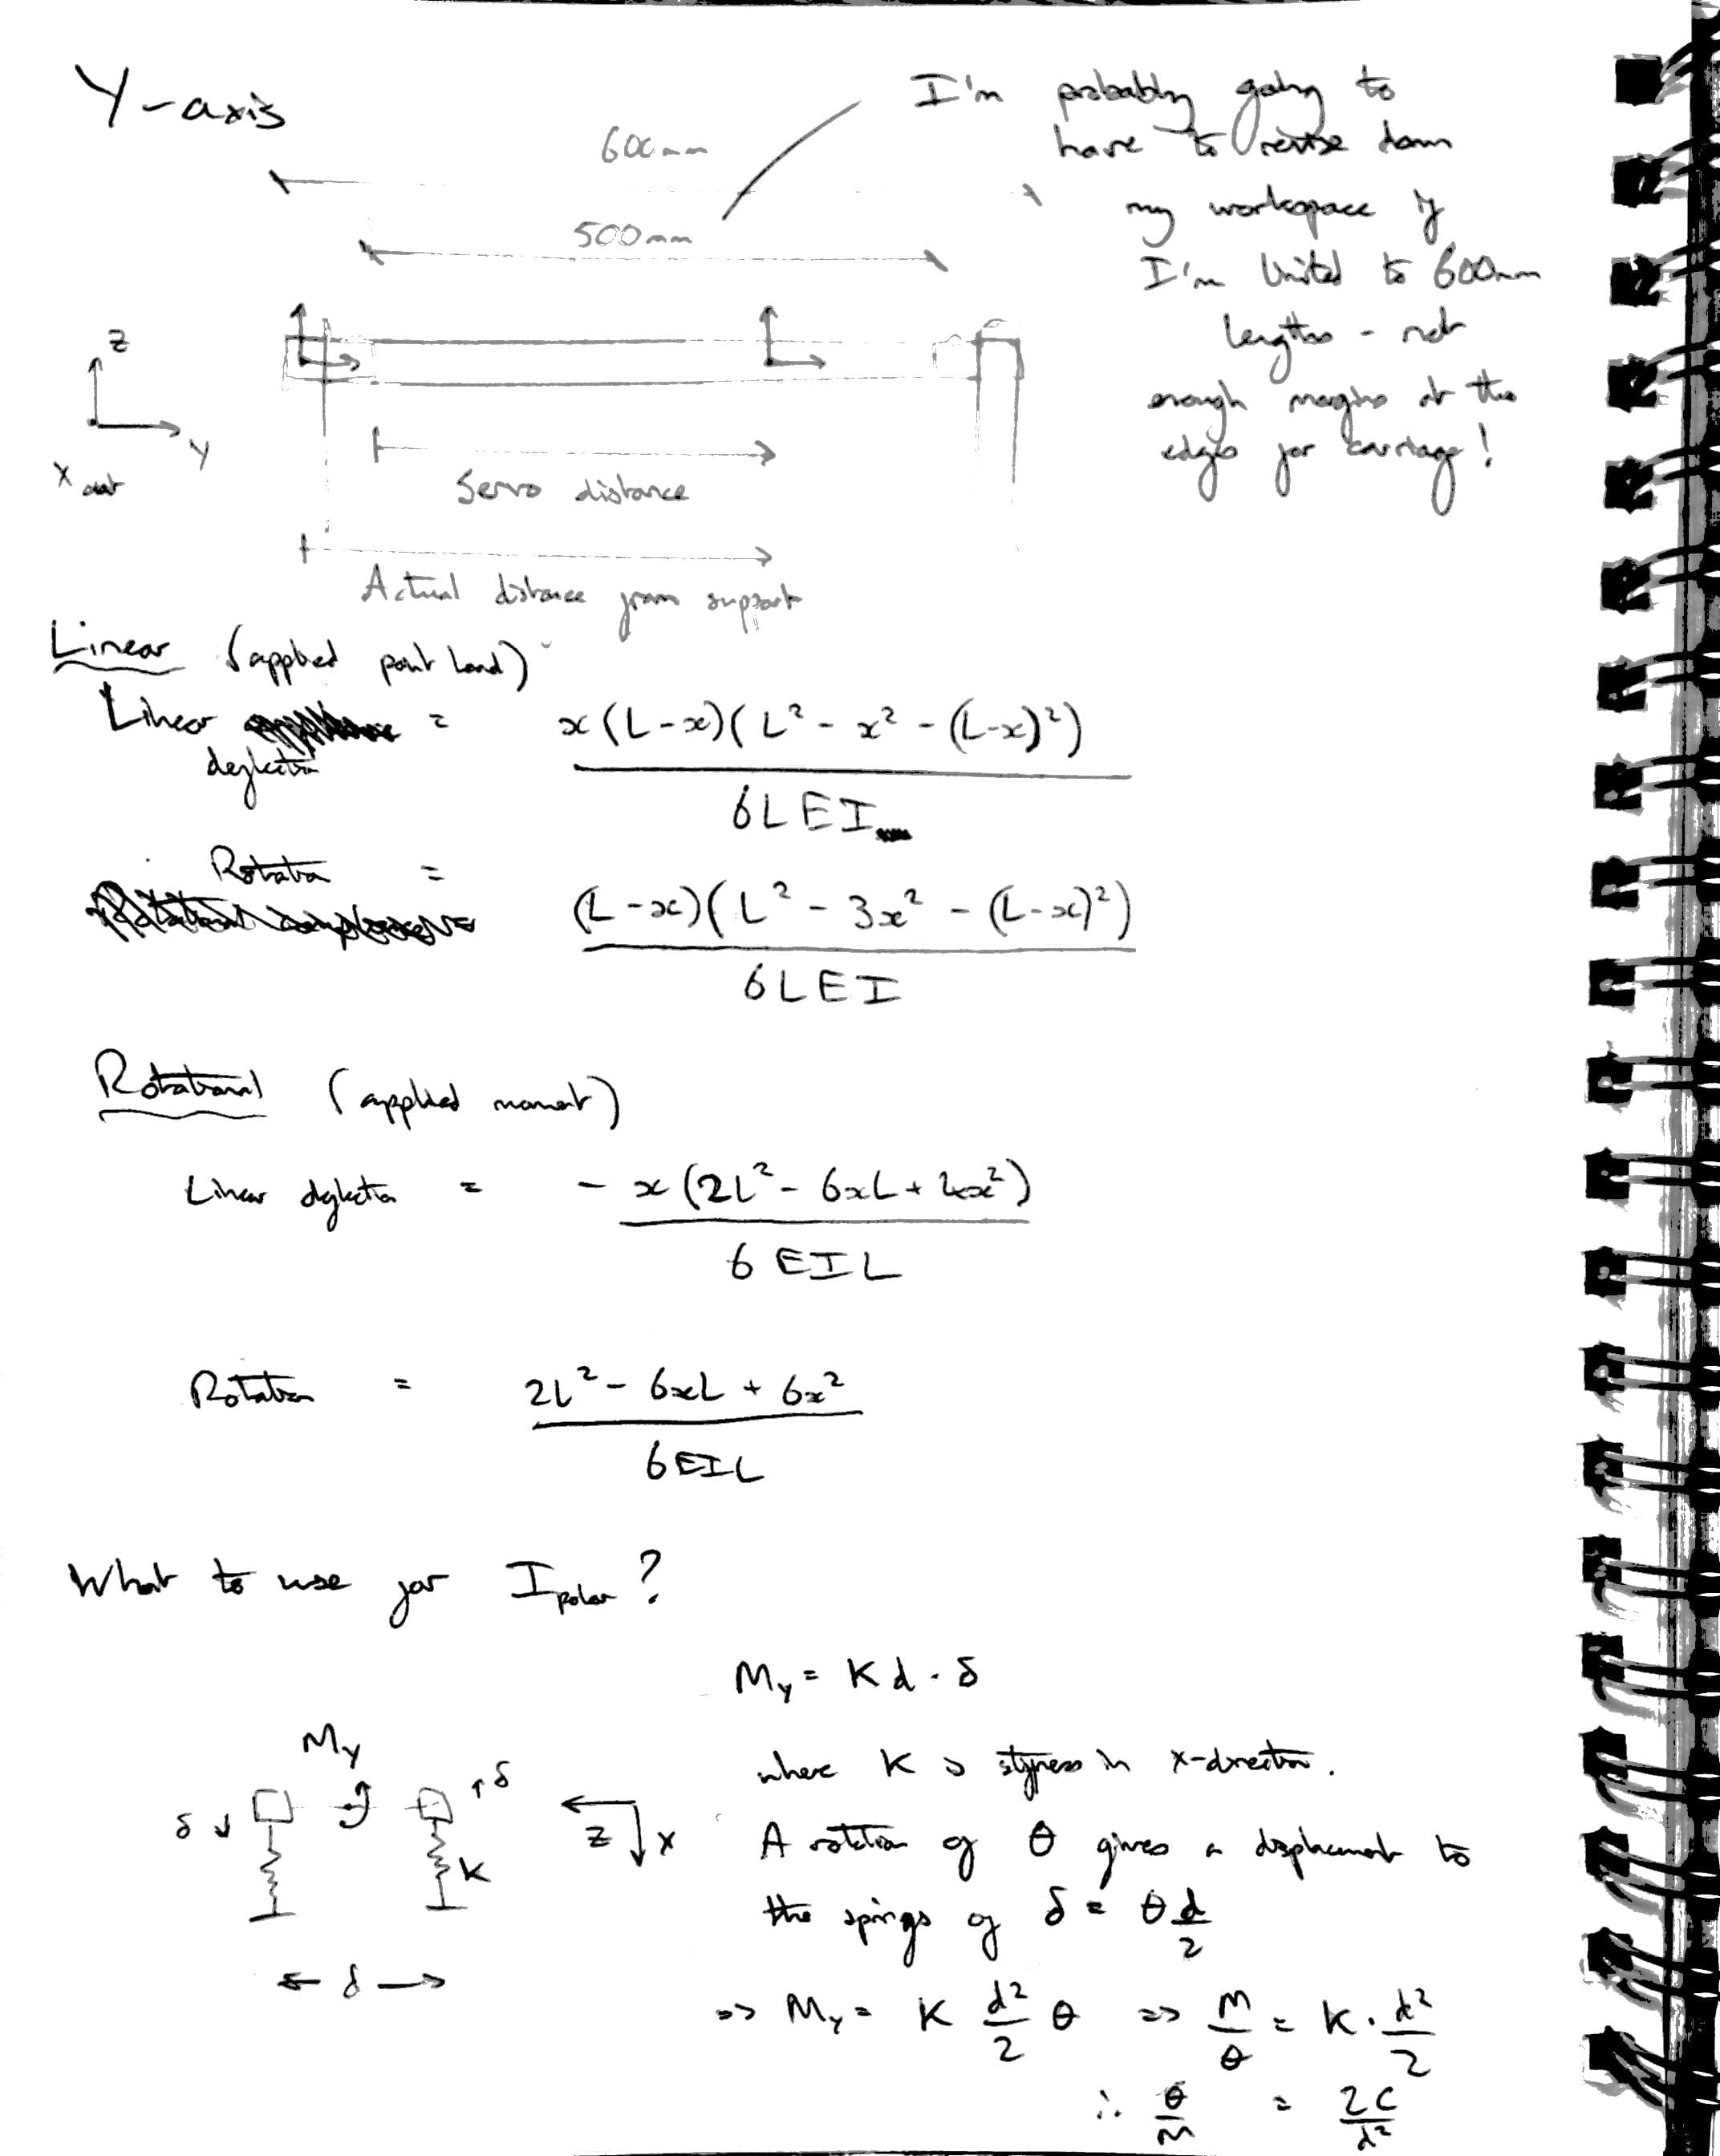 Y-axis
600mm
500mm
I'm probably going to
have to revise down
my workspace if
I'm limited to 600mm
lengths - not
enough margins at the
edges for carriage!
Z
Y
X out
Servo distance
Actual distance from support
Linear (applied point load)
Linear = x(L-x)(L² - x² - (L-x)²)
deflection
6LEI
Rotation = (L-x)(L² - 3x² - (L-x)²)
6LEI
Rotational (applied moment)
Linear deflection = - x(2L² - 6xL + 4x²)
6EIL
Rotation = 2L² - 6xL + 6x²
6EIL
What to use for I polar?
My = Kd · δ
My
where K is stiffness in x-direction.
δ
δ
K
Z
x
A rotation of θ gives a displacement to
the springs of δ = θ d/2
d
=> My = K d²/2 θ => M/θ = K · d²/2
∴ θ/M = 2C/d²